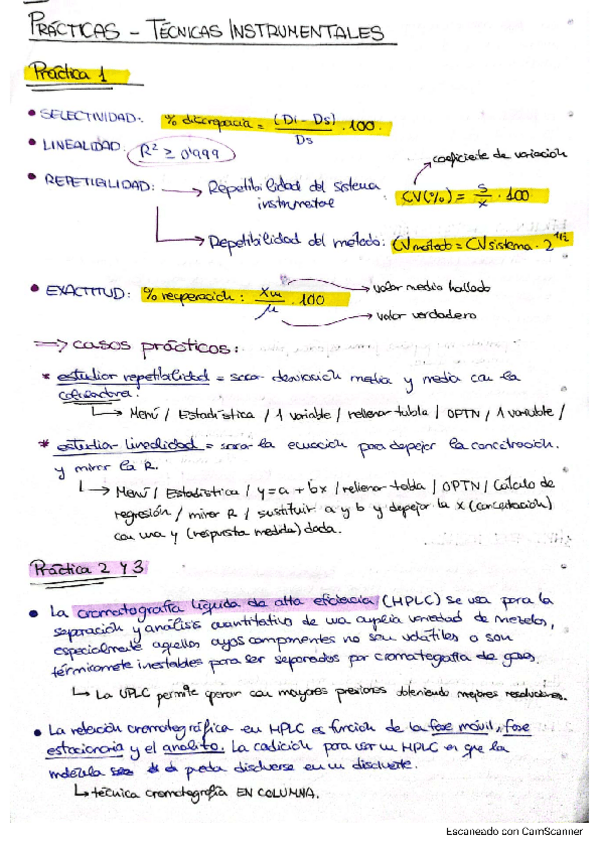 PRÁCTICAS - TÉCNICAS INSTRUMENTALES
Práctica 1
• SELECTIVIDAD: % discrepancia = (Di - Ds) / Ds · 100
• LINEALIDAD: R² ≥ 0'999
coeficiente de variación
• REPETIBILIDAD: → Repetibilidad del sistema instrumental CV(%) = s / x · 100
→ Repetibilidad del método: CVmétodo = CVsistema · 2^1/2
• EXACTITUD: % recuperación: Xm / μ · 100 → valor medio hallado
→ valor verdadero
⇒ casos prácticos:
* estudiar repetibilidad = sacar desviación media y media con la
calculadora.
↳ Menú / Estadística / 1 variable / rellenar tabla / OPTN / 1 variable /
* estudiar linealidad = sacar la ecuación para despejar la concentración.
y mirar la R.
↳ Menú / Estadística / y = a + bx / rellenar tabla / OPTN / Cálculo de
regresión / mirar R / sustituir a y b y despejar la x (concentración)
con una y (respuesta medida) dada.
Práctica 2 Y 3
• La cromatografía líquida de alta eficiencia (HPLC) se usa para la
separación y análisis cuantitativo de una amplia variedad de mezclas,
especialmente aquellas cuyos componentes no son volátiles o son
térmicamente inestables para ser separados por cromatografía de gases.
↳ La UPLC permite operar con mayores presiones obteniendo mejores resoluciones.
• La relación cromatográfica en HPLC es función de la fase móvil, fase
estacionaria y el analito. La condición para usar un HPLC es que la
molécula pueda disolverse en un disolvente.
↳ técnica cromatografía EN COLUMNA.
Escaneado con CamScanner